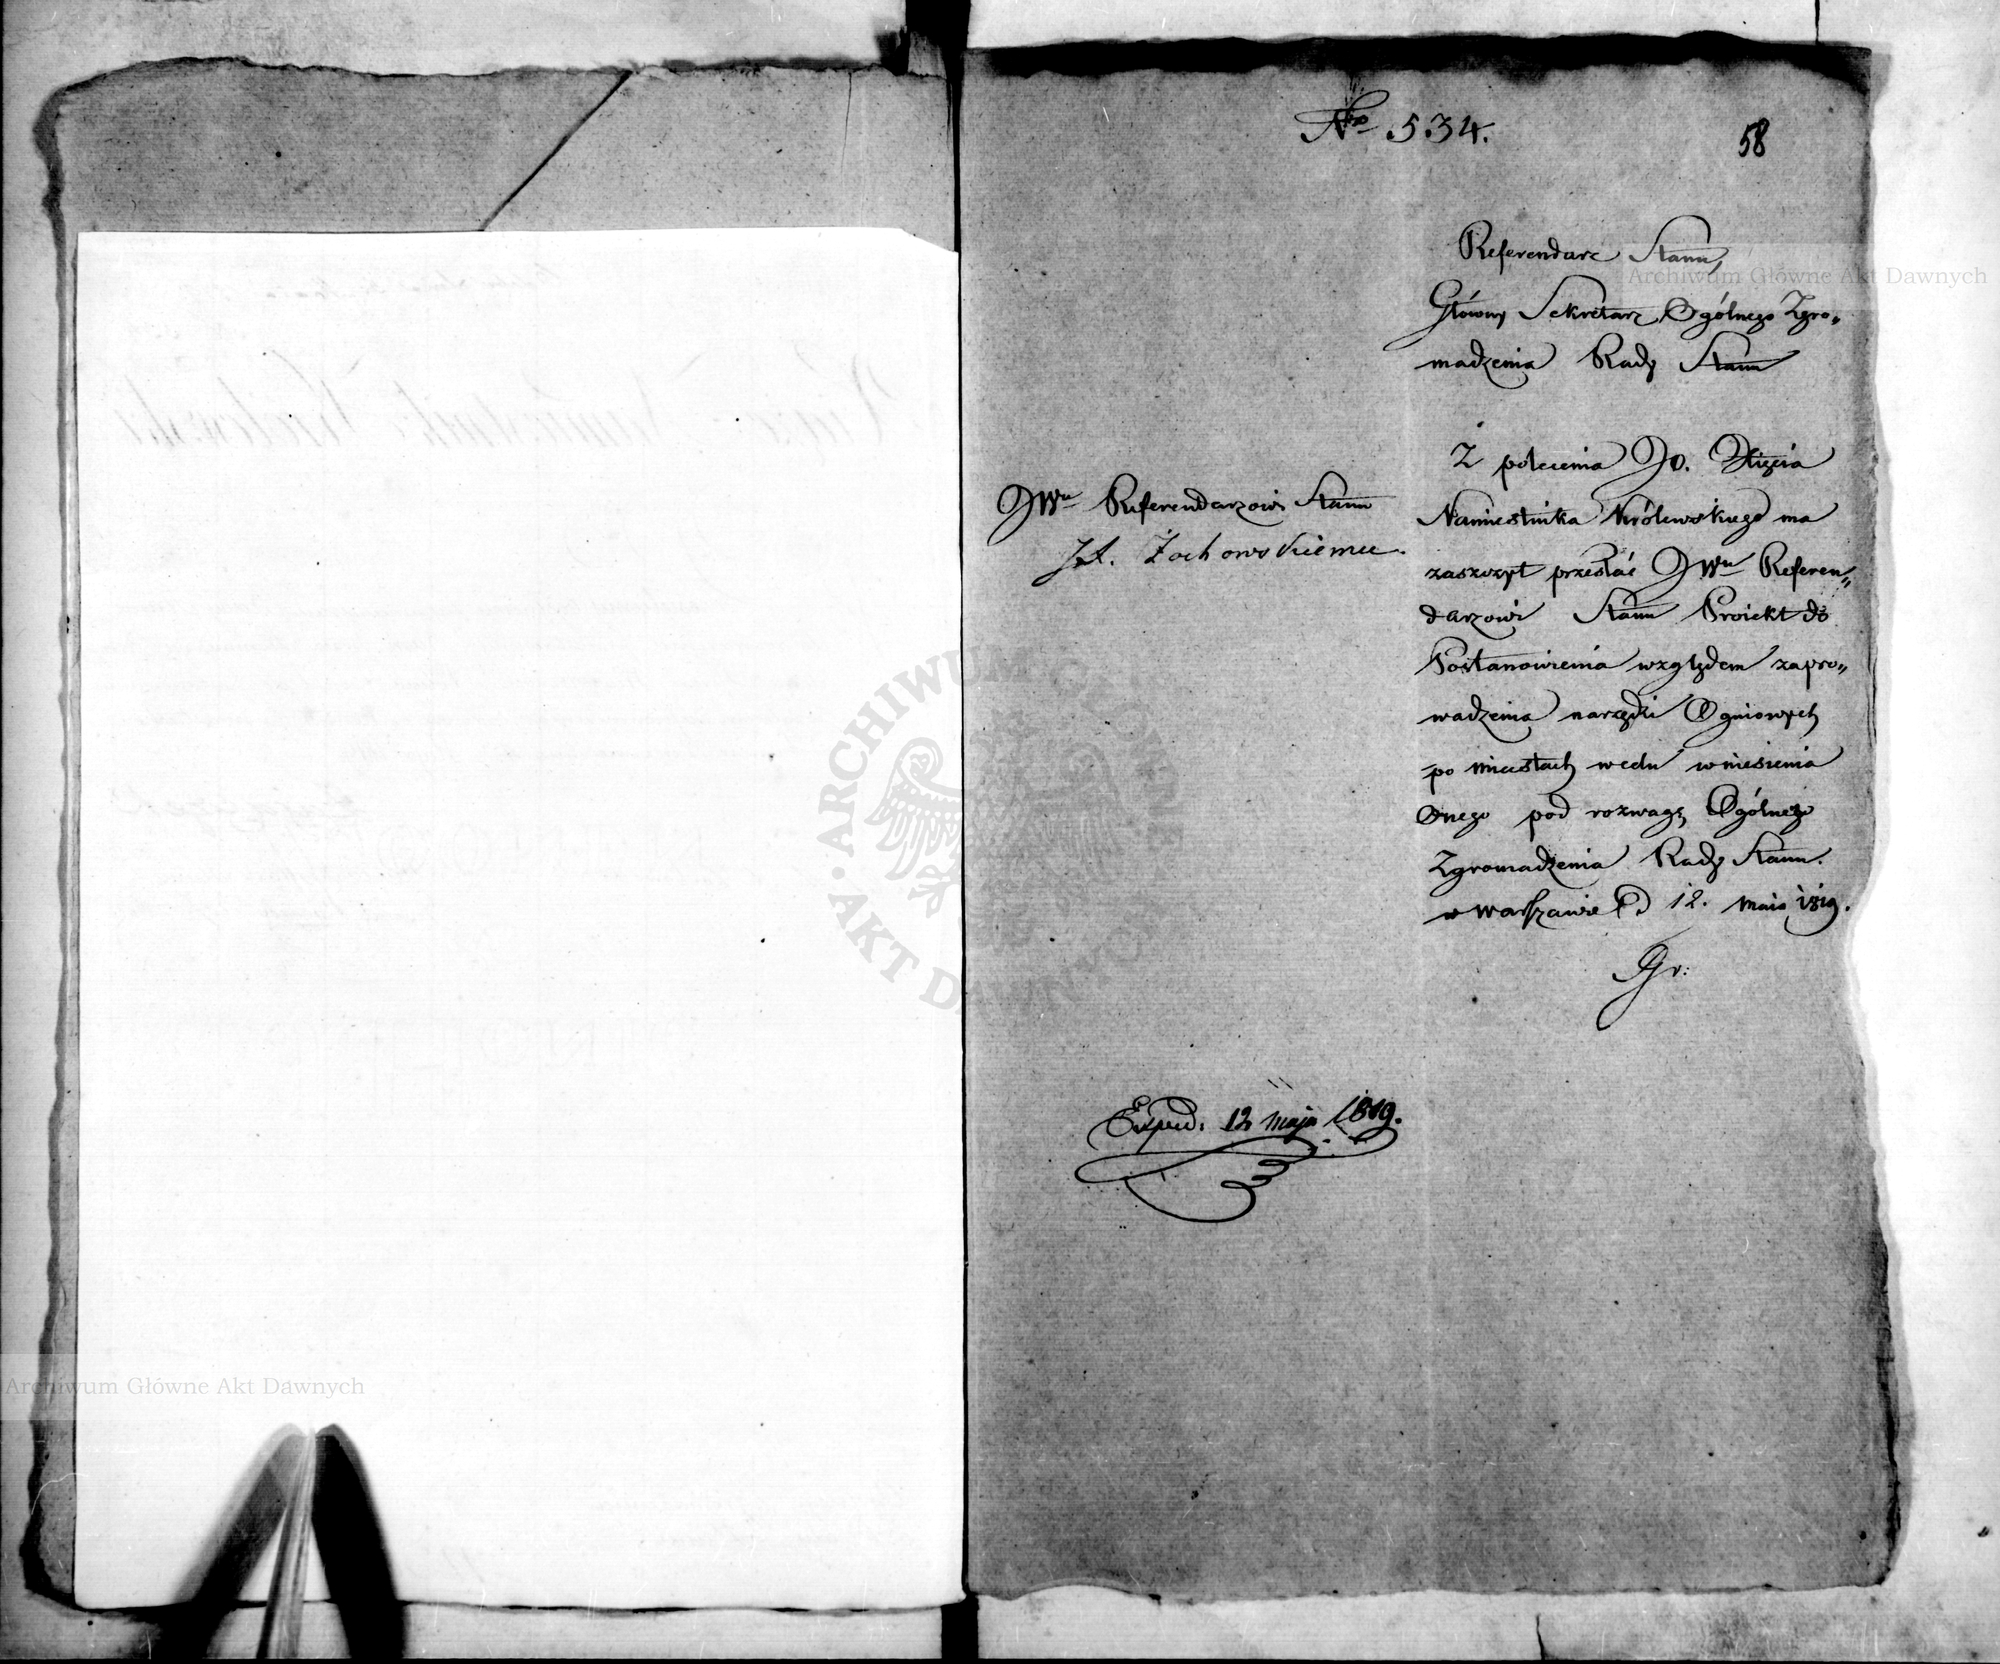 Nro 534.
58
Referendarz Stanu,
Główny Sekretarz Ogólnego Zgro„
madzenia Rady Stanu
JWu Referendarzowi Stanu
Żochowskiemu.
Z polecenia JO. Xięcia
Namiestnika Królewskiego ma
zaszczyt przesłać JWu Referen„
darzowi Stanu Proiekt do
Postanowienia względem zapro„
wadzenia narzędzi Ogniowych
po miastach w celu wniesienia
Onego pod rozwagę Ogólnego
Zgromadzenia Rady Stanu.
w Warszawie d 12. maia 1819.
Exped. 12 maja 1819.
Archiwum Główne Akt Dawnych
ARCHIWUM GŁÓWNE AKT DAWNYCH
Archiwum Główne Akt Dawnych